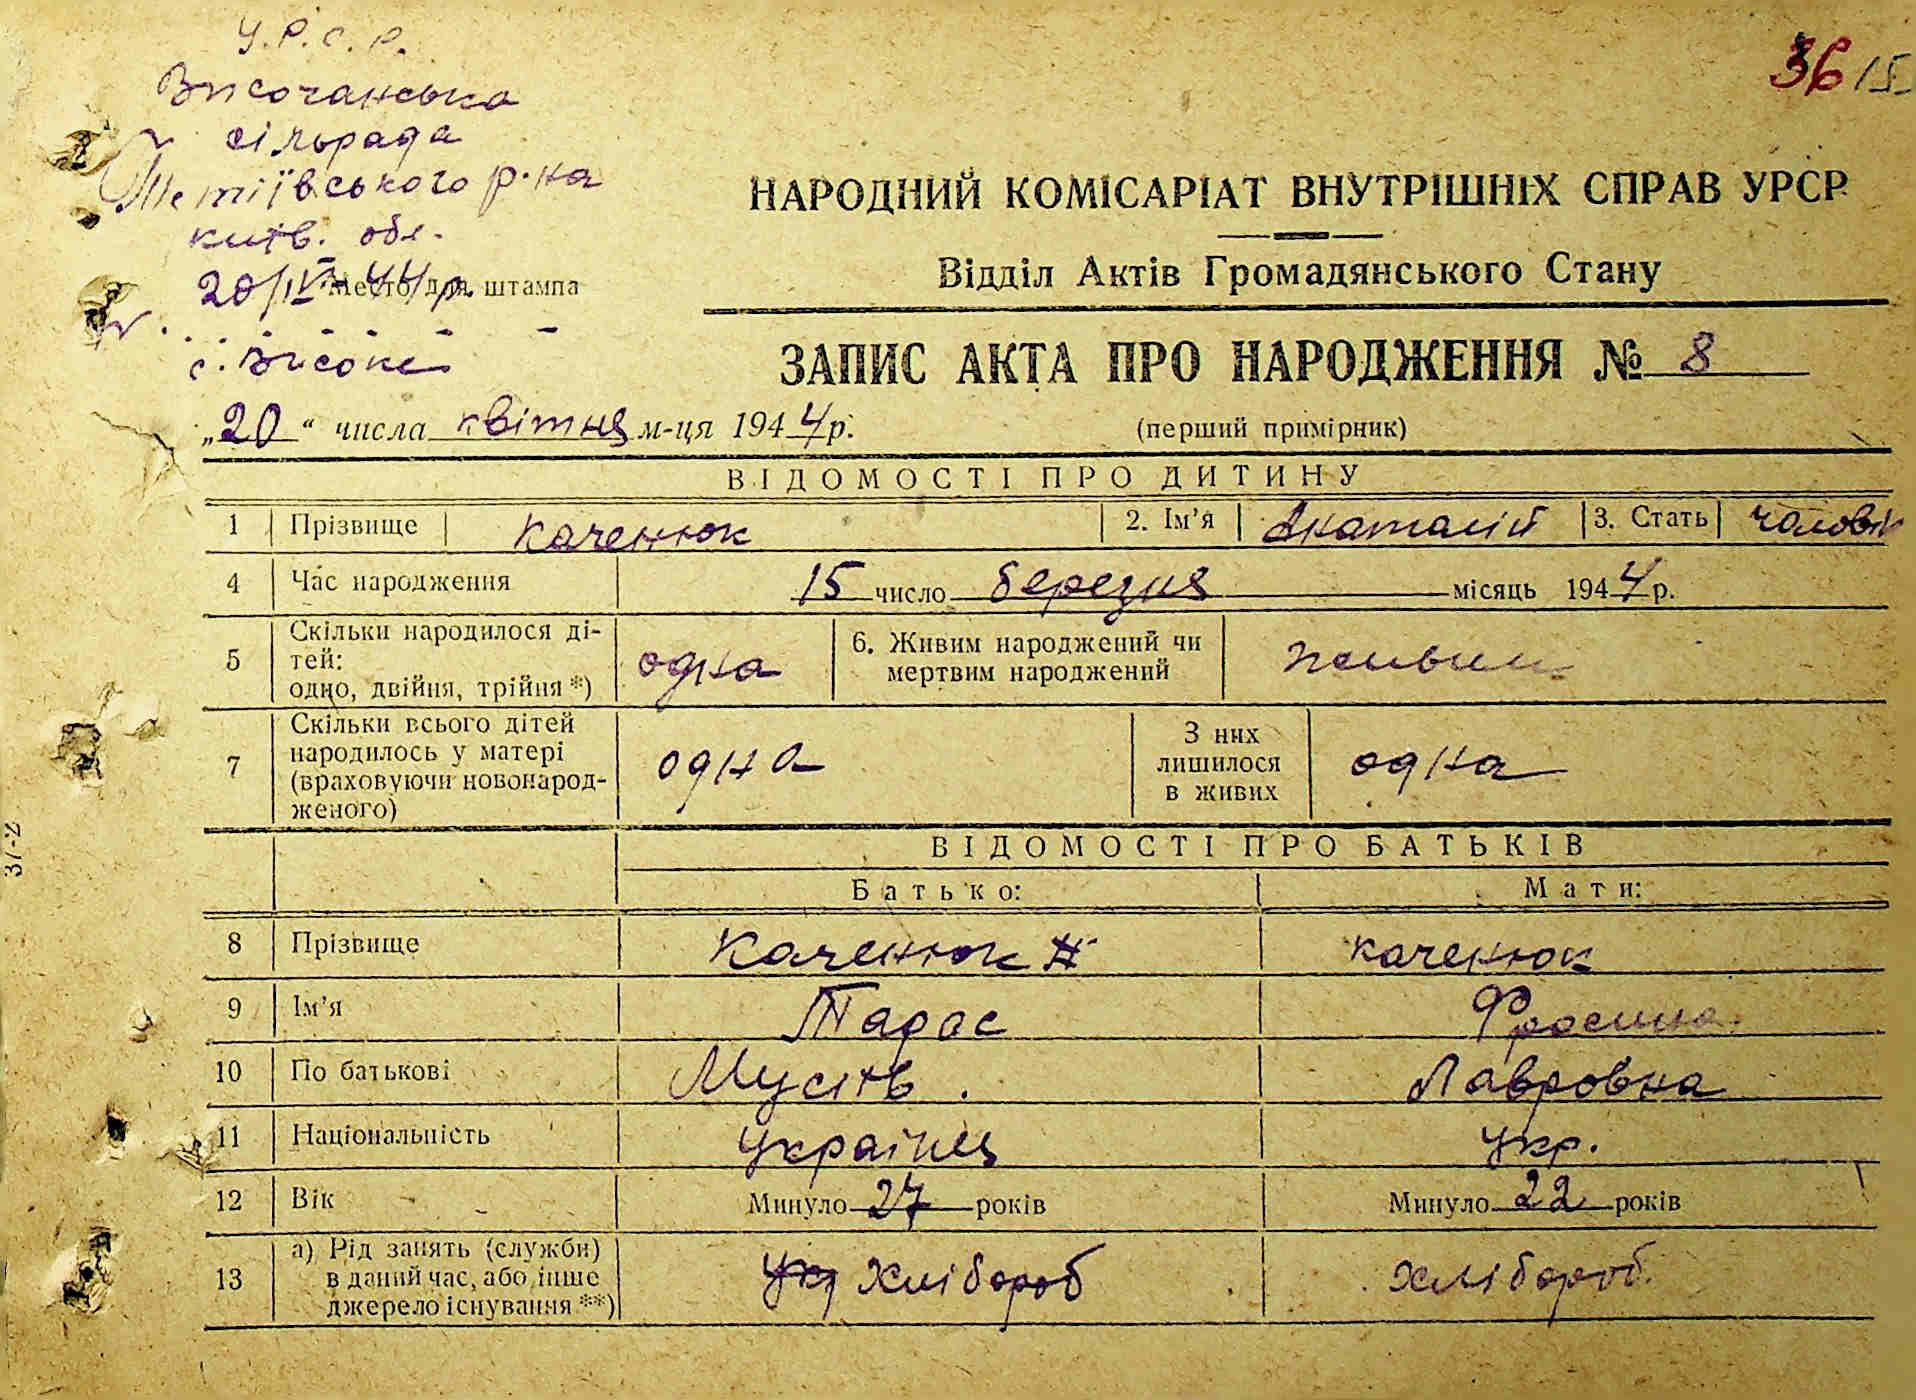 У.Р.С.Р.
36 15
Височанська
сільрада
Тетіївського р-на
НАРОДНИЙ КОМІСАРІАТ ВНУТРІШНІХ СПРАВ УРСР
київ. обл.
Відділ Актів Громадянського Стану
20/IV-44 р.
Место для штампа
с. Високе
ЗАПИС АКТА ПРО НАРОДЖЕННЯ № 8
„20“ числа квітня м-ця 1944 р.
(перший примірник)
ВІДОМОСТІ ПРО ДИТИНУ
1 Прізвище Каченюк 2. Ім'я Анаталій 3. Стать чоловік
4 Час народження 15 число березня місяць 1944 р.
5 Скільки народилося ді-
тей:
одно, двійня, трійня *) одна
6. Живим народжений чи
мертвим народжений живим
7 Скільки всього дітей
народилось у матері
(враховуючи новонарод-
женого) одна
З них
лишилося
в живих одна
ВІДОМОСТІ ПРО БАТЬКІВ
Батько: Мати:
8 Прізвище Каченюк каченюк
9 Ім'я Тарас Фросина
10 По батькові Мусіїв. Лавровна
11 Національність Українец Укр.
12 Вік Минуло 27 років Минуло 22 років
13 а) Рід занять (служби)
в даний час, або інше
джерело існування **) Хлібороб хлібороб.
37-2